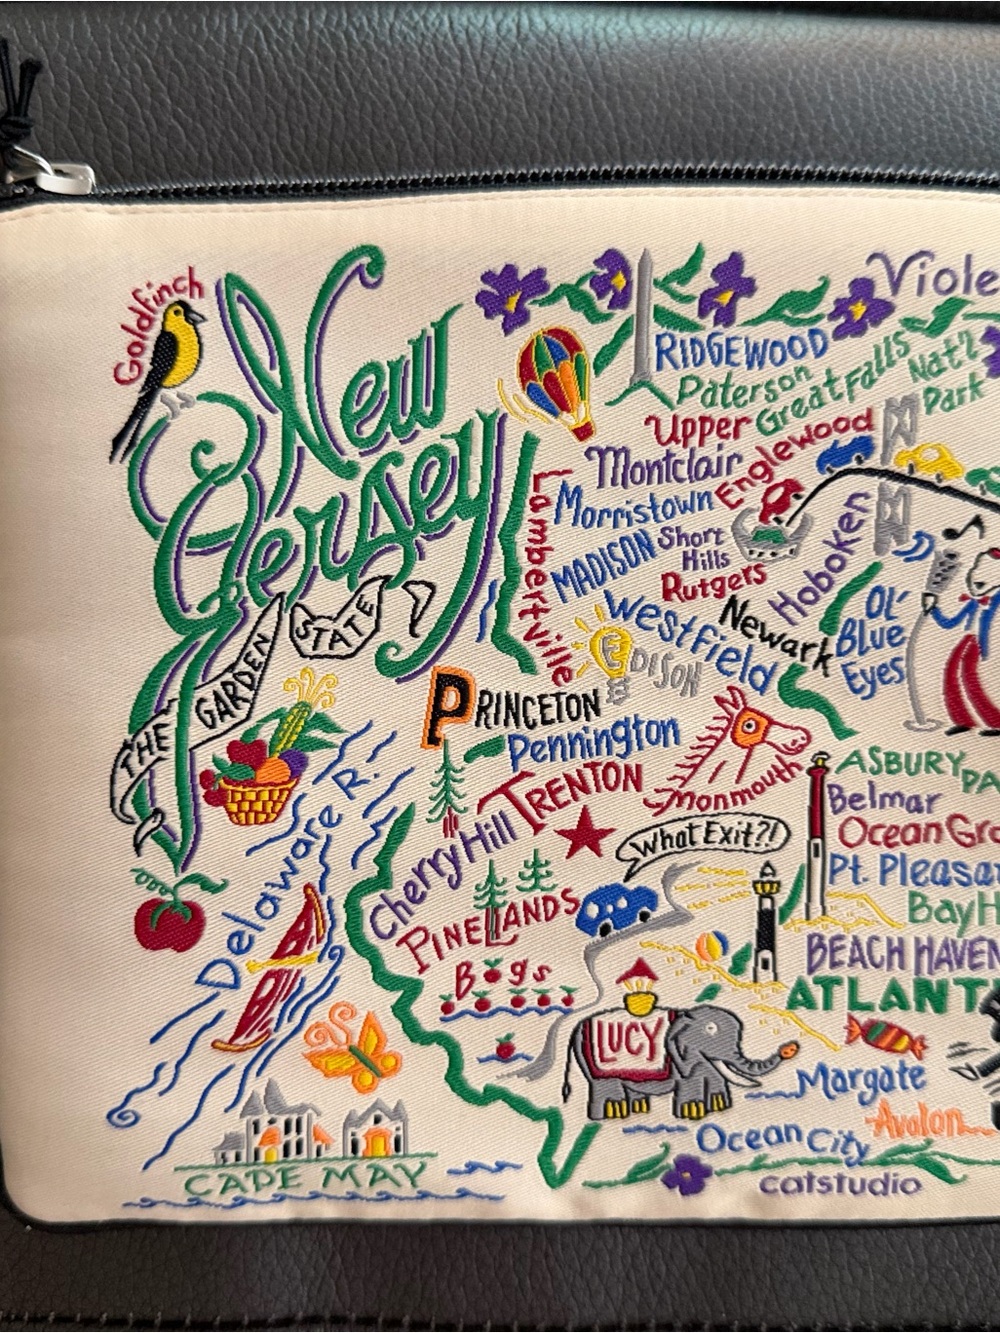 Goldfinch
New
Jersey
THE GARDEN STATE
RIDGEWOOD
Paterson
Great Falls
Nat'l
Park
Upper
Montclair
Englewood
Lambertville
Morristown
MADISON
Short
Hills
Rutgers
Hoboken
Westfield
Newark
OL'
Blue
Eyes
EDISON
PRINCETON
Pennington
TRENTON
Monmouth
Cherry Hill
What Exit?!
PINELANDS
Bogs
Delaware R.
ASBURY
Belmar
Ocean
Pt.
Bay
BEACH HAVEN
LUCY
Margate
Avalon
Ocean City
CAPE MAY
catstudio